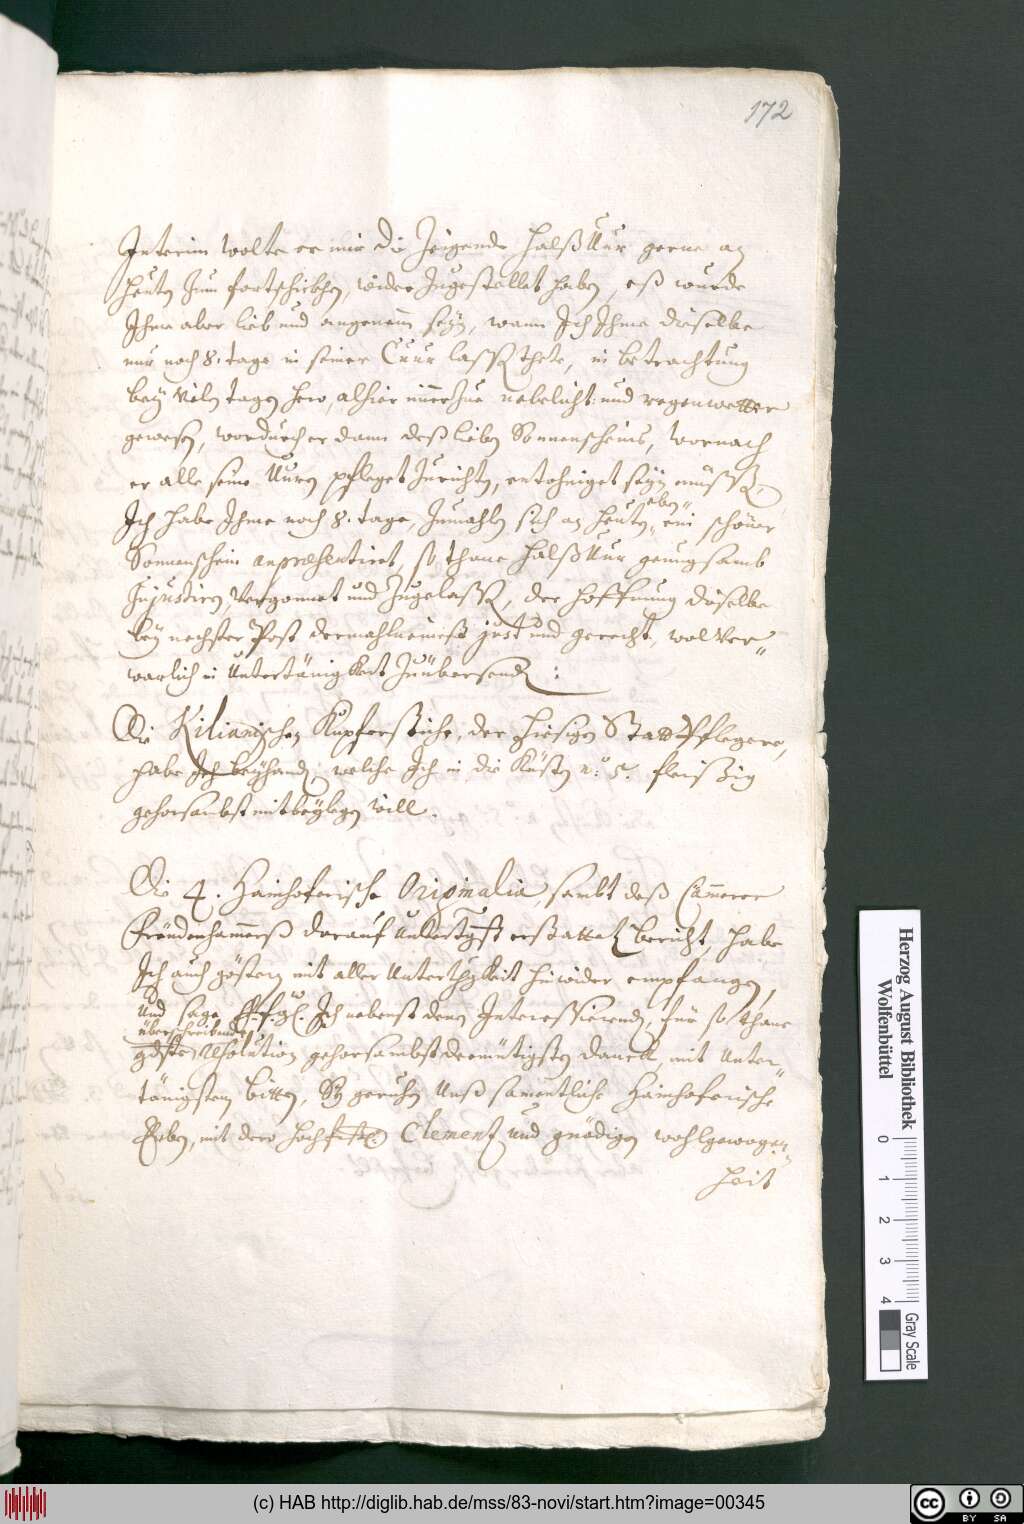 172
Interim wolte er mir die Zeigende Halß Uur gerne an
heuten zum fortschickhen, wider zugestellet haben, eß wurde
Ihme aber lieb und angenem seyn, wann Ich Ihme dieselbe
nur noch 8. tage in seiner Cuur lassen thete, in betrachtung
bey vilen tagen hero, alhier immerzue nebelicht: und regenwetter
gewesen, wordurch er dann deß lieben Sonnenscheins, wornach
er alle seine Uuren pfleget zurichten, entohniget seyn müssen,
Ich habe Ihme noch 8. tage, zumahlen sich an heuten eben ein schöner
Sonnenschein anpræsentiret, so thane Halß Uur genugsamb
Zujustiren, vergonnet und zugelassen, der hoffnung dieselbe
bey nechster Post dermahlneineß just und gerecht, wol ver-
warlich in Untertänigkeit zuübersenden:
Die Kilianischen Kupferstiche, der hiesigen Stattpflegere,
habe Ich beyhanden, welche Ich in die Küsten n.º 5. fleissig
gehorsambst mitbeylegen will.
Die 4. Hainhoferische Originalia, sambt deß Cammerer
darauf erstatteten bericht, habe
Ich auch gestern mit aller Unterthgkeit hinwider empfangen,
Und sage Ich nebenst denen Interessierenden, für so thane
überschreibende
gdste Resolution gehorsambst demütigsten danckh, mit Unter-
tänigstem bitten, Sy geruhen Unß samentliche Hainhoferische
Erben, mit dero hochfrstl. Clementz und gnedigen wohlgewogen-
heit
Herzog August Bibliothek
Wolfenbüttel
0 1 2 3 4
Gray Scale
(c) HAB http://diglib.hab.de/mss/83-novi/start.htm?image=00345
cc BY SA